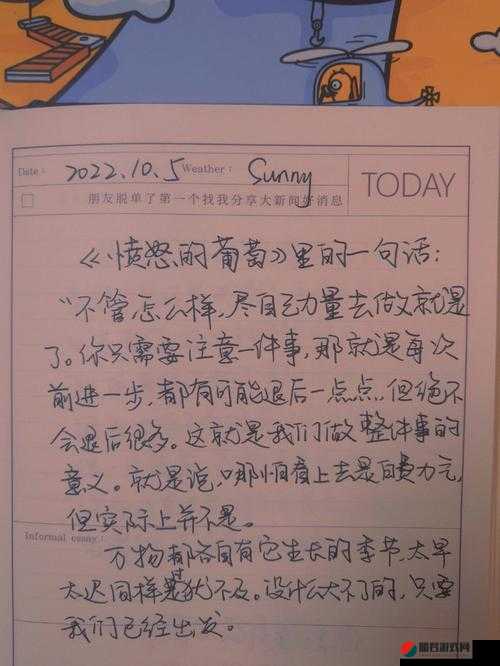 Date: 2022.10.5 Weather: Sunny
TODAY
朋友脱单了第一个找我分享大新闻好消息
《愤怒的葡萄》里的一句话:
“不管怎么样,尽自己力量去做就是
了。你只需要注意一件事,那就是每次
前进一步,都有可能退后一点点,但绝不
会退后很多。这就是我们做整件事的
意义。就是说,哪怕看上去是白费力气,
但实际上并不是。
Informal essay:
万物都各自有它生长的季节,太早
太迟同样是过犹不及。没什么大不了的,只要
我们已经出发。